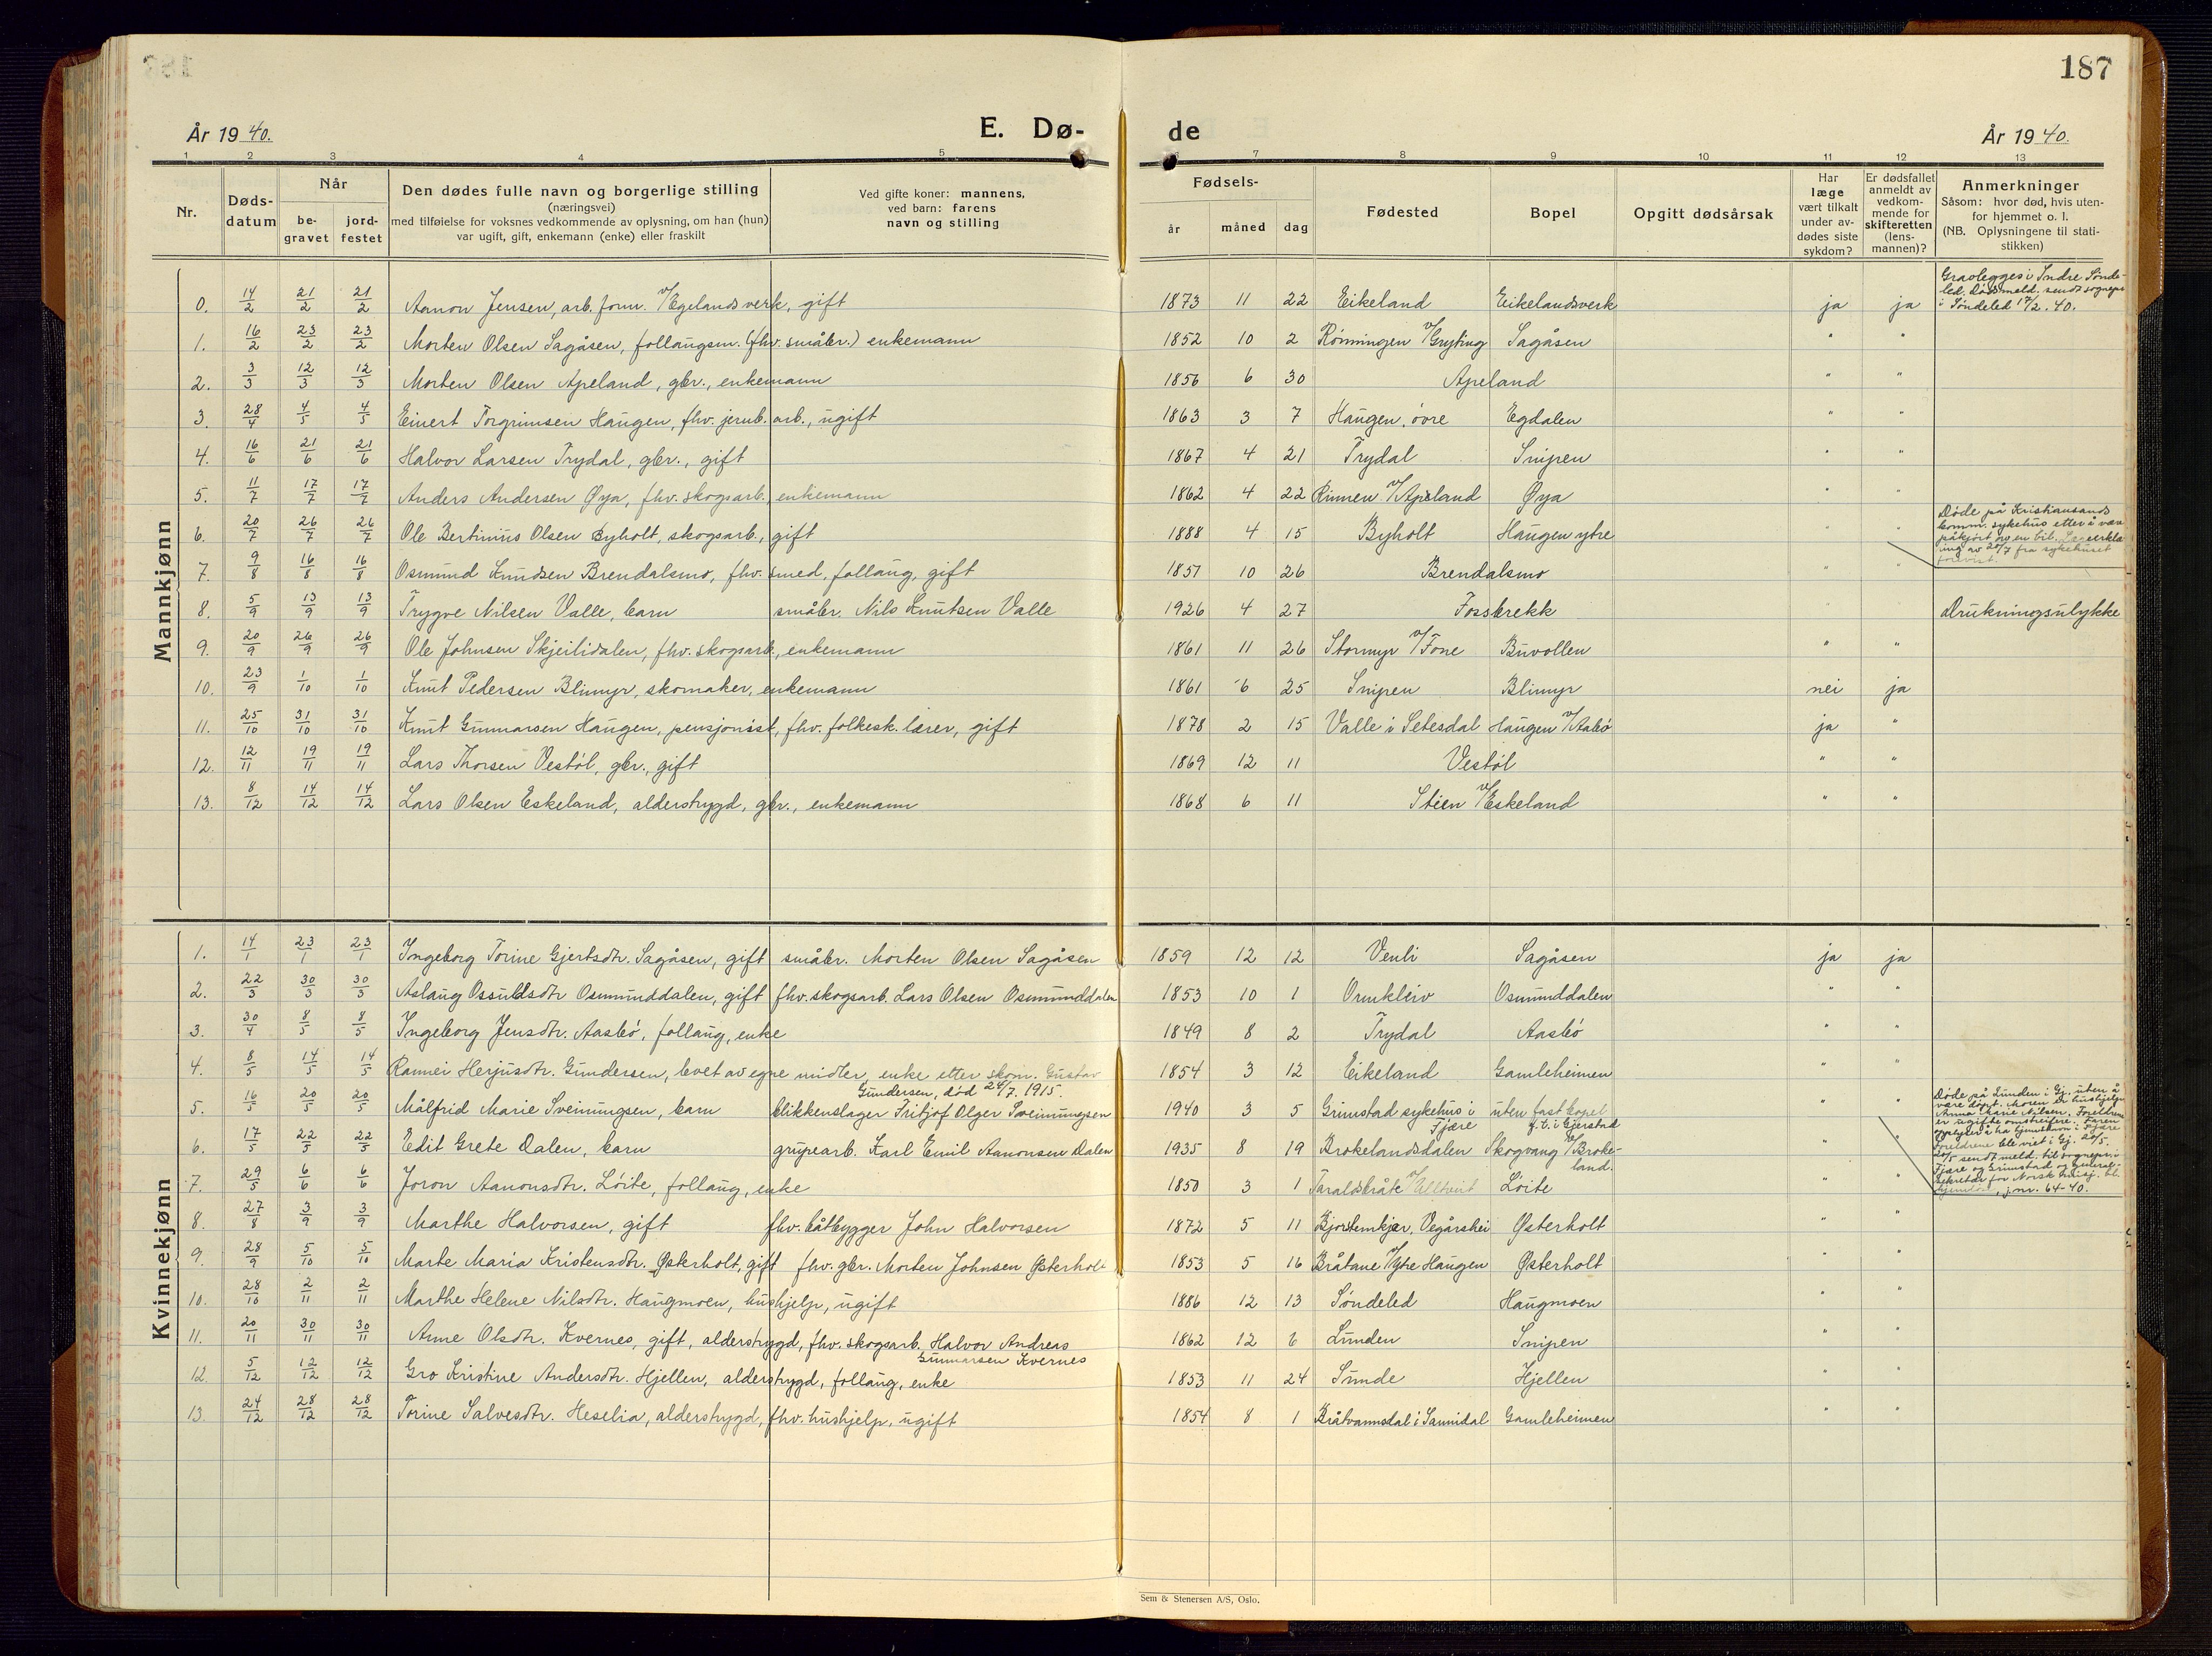 187
År 1940.
E. Dø-
de
År 1940.
1 2 3 4 5 6 7 8 9 10 11 12 13
Nr.
Døds-
datum
Når
be-
gravet
jord-
festet
Den dødes fulle navn og borgerlige stilling
(næringsvei)
med tilføielse for voksnes vedkommende av oplysning, om han (hun)
var ugift, gift, enkemann (enke) eller fraskilt
Ved gifte koner: mannens,
ved barn: farens
navn og stilling
Fødsels-
år måned dag
Fødested
Bopel
Opgitt dødsårsak
Har
læge
vært tilkalt
under av-
dødes siste
sykdom?
Er dødsfallet
anmeldt av
vedkom-
mende for
skifteretten
(lens-
mannen)?
Anmerkninger
Såsom: hvor død, hvis uten-
for hjemmet o. l.
(NB. Oplysningene til stati-
stikken)
Mannkjønn
0. 14/2 21/2 21/2 Aanon Jensen, arb. form. v/Egelandsverk, gift 1873 11 22 Eikeland Eikelandsverk ja ja
Gravlegges i Indre Sønde-
led. Dødsmeld. sendt sognepr.
i Søndeled 17/2. 40.
1. 16/2 23/2 23/2 Morten Olsen Sagåsen, follaugsm. (fhv. småbr.) enkemann 1852 10 2 Rønningen v/Gryting Sagåsen " "
2. 3/3 12/3 12/3 Morten Olsen Apeland, gbr., enkemann 1856 6 30 Apeland " "
3. 28/4 4/5 4/5 Einert Torgrimsen Haugen, fhv. jernb. arb., ugift 1863 3 7 Haugen, øvre Egdalen " "
4. 16/6 21/6 21/6 Halvor Larsen Trydal, gbr., gift 1867 4 21 Trydal Snipen " "
5. 11/7 17/7 17/7 Anders Andersen Øya, fhv. skogsarb., enkemann 1862 4 22 Rinnen v/Apeland Øya " "
6. 20/7 26/7 26/7 Ole Bertinius Olsen Byholt, skogsarb., gift 1888 4 15 Byholt Haugen ytre " "
Døde på Kristiansands
komm. sykehus etter å vær
påkjørt av en bil.
ing av 20/7 fra sykehuset
7. 9/8 16/8 16/8 Osmund Knudsen Brendalsmo, fhv. smed, follaug, gift 1851 10 26 Brendalsmo " "
8. 5/9 13/9 13/9 Trygve Nilsen Valle, barn småbr. Nils Knutsen Valle 1926 4 27 Fossbrekk " Drukningsulykke
9. 20/9 26/9 26/9 Ole Johnsen Skjeilidalen, fhv. skogsarb., enkemann 1861 11 26 Stormyr v/Fone Buvollen " "
10. 23/9 1/10 1/10 Knut Pedersen Blimyr, skomaker, enkemann 1861 6 25 Snipen Blimyr nei ja
11. 25/10 31/10 31/10 Knut Gunnarsen Haugen, pensjonist, fhv. folkesk. lærer, gift 1878 2 15 Valle i Setesdal Haugen v/Aasbø ja "
12. 12/11 19/11 19/11 Lars Thorsen Vestøl, gbr., gift 1869 12 11 Vestøl " "
13. 8/12 14/12 14/12 Lars Olsen Eskeland, alderstrygd, gbr., enkemann 1868 6 11 Stien v/Eskeland " "
Kvinnekjønn
1. 14/1 23/1 23/1 Ingeborg Torine Gjertsdtr. Sagåsen, gift småbr. Morten Olsen Sagåsen 1859 12 12 Venli Sagåsen ja ja
2. 22/3 30/3 30/3 Aslaug Ossuldsdtr Osmunddalen, gift fhv. skogsarb. Lars Olsen Osmunddalen 1853 10 1 Ormkleiv Osmunddalen " "
3. 30/4 8/5 8/5 Ingeborg Jensdtr. Aasbø, follaug, enke 1849 8 2 Trydal Aasbø " "
4. 8/5 14/5 14/5 Rannei Herjusdtr. Gundersen, levet av egne midler, enke etter skom. Gustav 1854 3 12 Eikeland Gamleheimen " "
Gundersen, død 24/7. 1915.
5. 16/5 20/5 20/5 Målfrid Marie Sveinungsen, barn blikkenslager Fritjof Olger Sveinungsen 1940 3 5 Grimstad sykehus i uten fast bopel " "
Fjære f.t. i Gjerstad
Døde på Lunden i Gj. uten å
være døpt. Moren er hushjelpen
Anna Marie Nilsen. Foreldrene
er ugifte omstreifere. Faren
opplyser å ha hjemstavn i Fjære
Foreldrene ble viet i Gj. 20/5.
20/5 sendt meld. til sognepr. i
Fjære og Grimstad og general-
sekretær for Norsk Misj. bl.
hjemløse, j.nr. 64-40.
6. 17/5 22/5 22/5 Edit Grete Dalen, barn grupearb. Karl Emil Aanonsen Dalen 1935 8 19 Brokelandsdalen Skogvang v/Broke- " "
land.
7. 29/5 6/6 6/6 Joron Aanonsdtr. Løite, follaug, enke 1850 3 1 Taraldsbråte v/Alltveit Løite " "
8. 27/8 3/9 3/9 Marthe Halvorsen, gift fhv. båtbygger John Halvorsen 1872 5 11 Bjortemkjær, Vegårshei Østerholt " "
9. 28/9 5/10 5/10 Marte Maria Kristensdtr. Østerholt, gift fhv. gbr. Morten Johnsen Østerholt 1853 5 16 Bråtane v/Ytre Haugen Østerholt " "
10. 28/10 2/11 2/11 Marthe Helene Nilsdtr. Haugmoen, hushjelp, ugift 1886 12 13 Søndeled Haugmoen " "
11. 20/11 30/11 30/11 Anne Olsdtr. Kvernes, gift, alderstrygd, fhv. skogsarb. Halvor Andreas 1862 12 6 Lunden Snipen " "
Gunnarsen Kvernes
12. 5/12 12/12 12/12 Gro Kristine Andersdtr. Hjellen, alderstrygd, follaug, enke 1853 11 24 Sunde Hjellen " "
13. 24/12 28/12 28/12 Torine Salvesdtr. Heselia, alderstrygd, fhv. hushjelp, ugift 1854 8 1 Bråtvannsdal i Sannidal Gamleheimen " "
Sem & Stenersen A/S, Oslo.